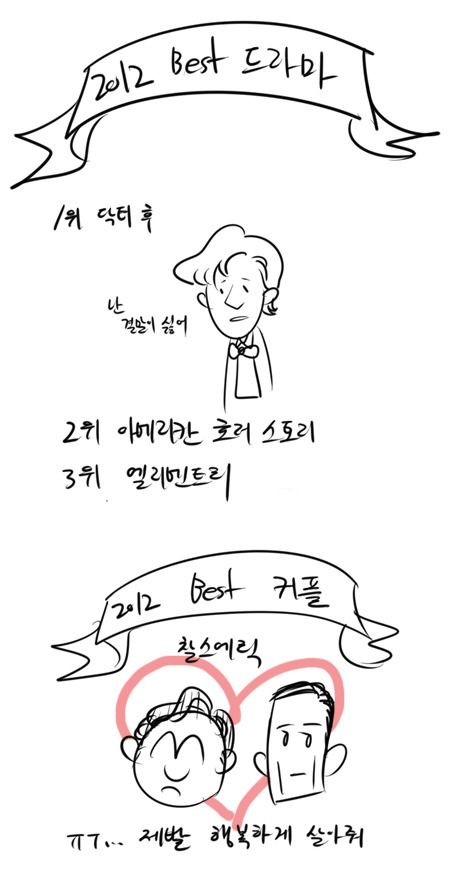 2012 Best 드라마
1위 닥터 후
난
결말이 싫어
2위 아메리칸 호러 스토리
3위 엘리멘트리
2012 Best 커플
찰스에릭
ㅠㅜ... 제발 행복하게 살아줘